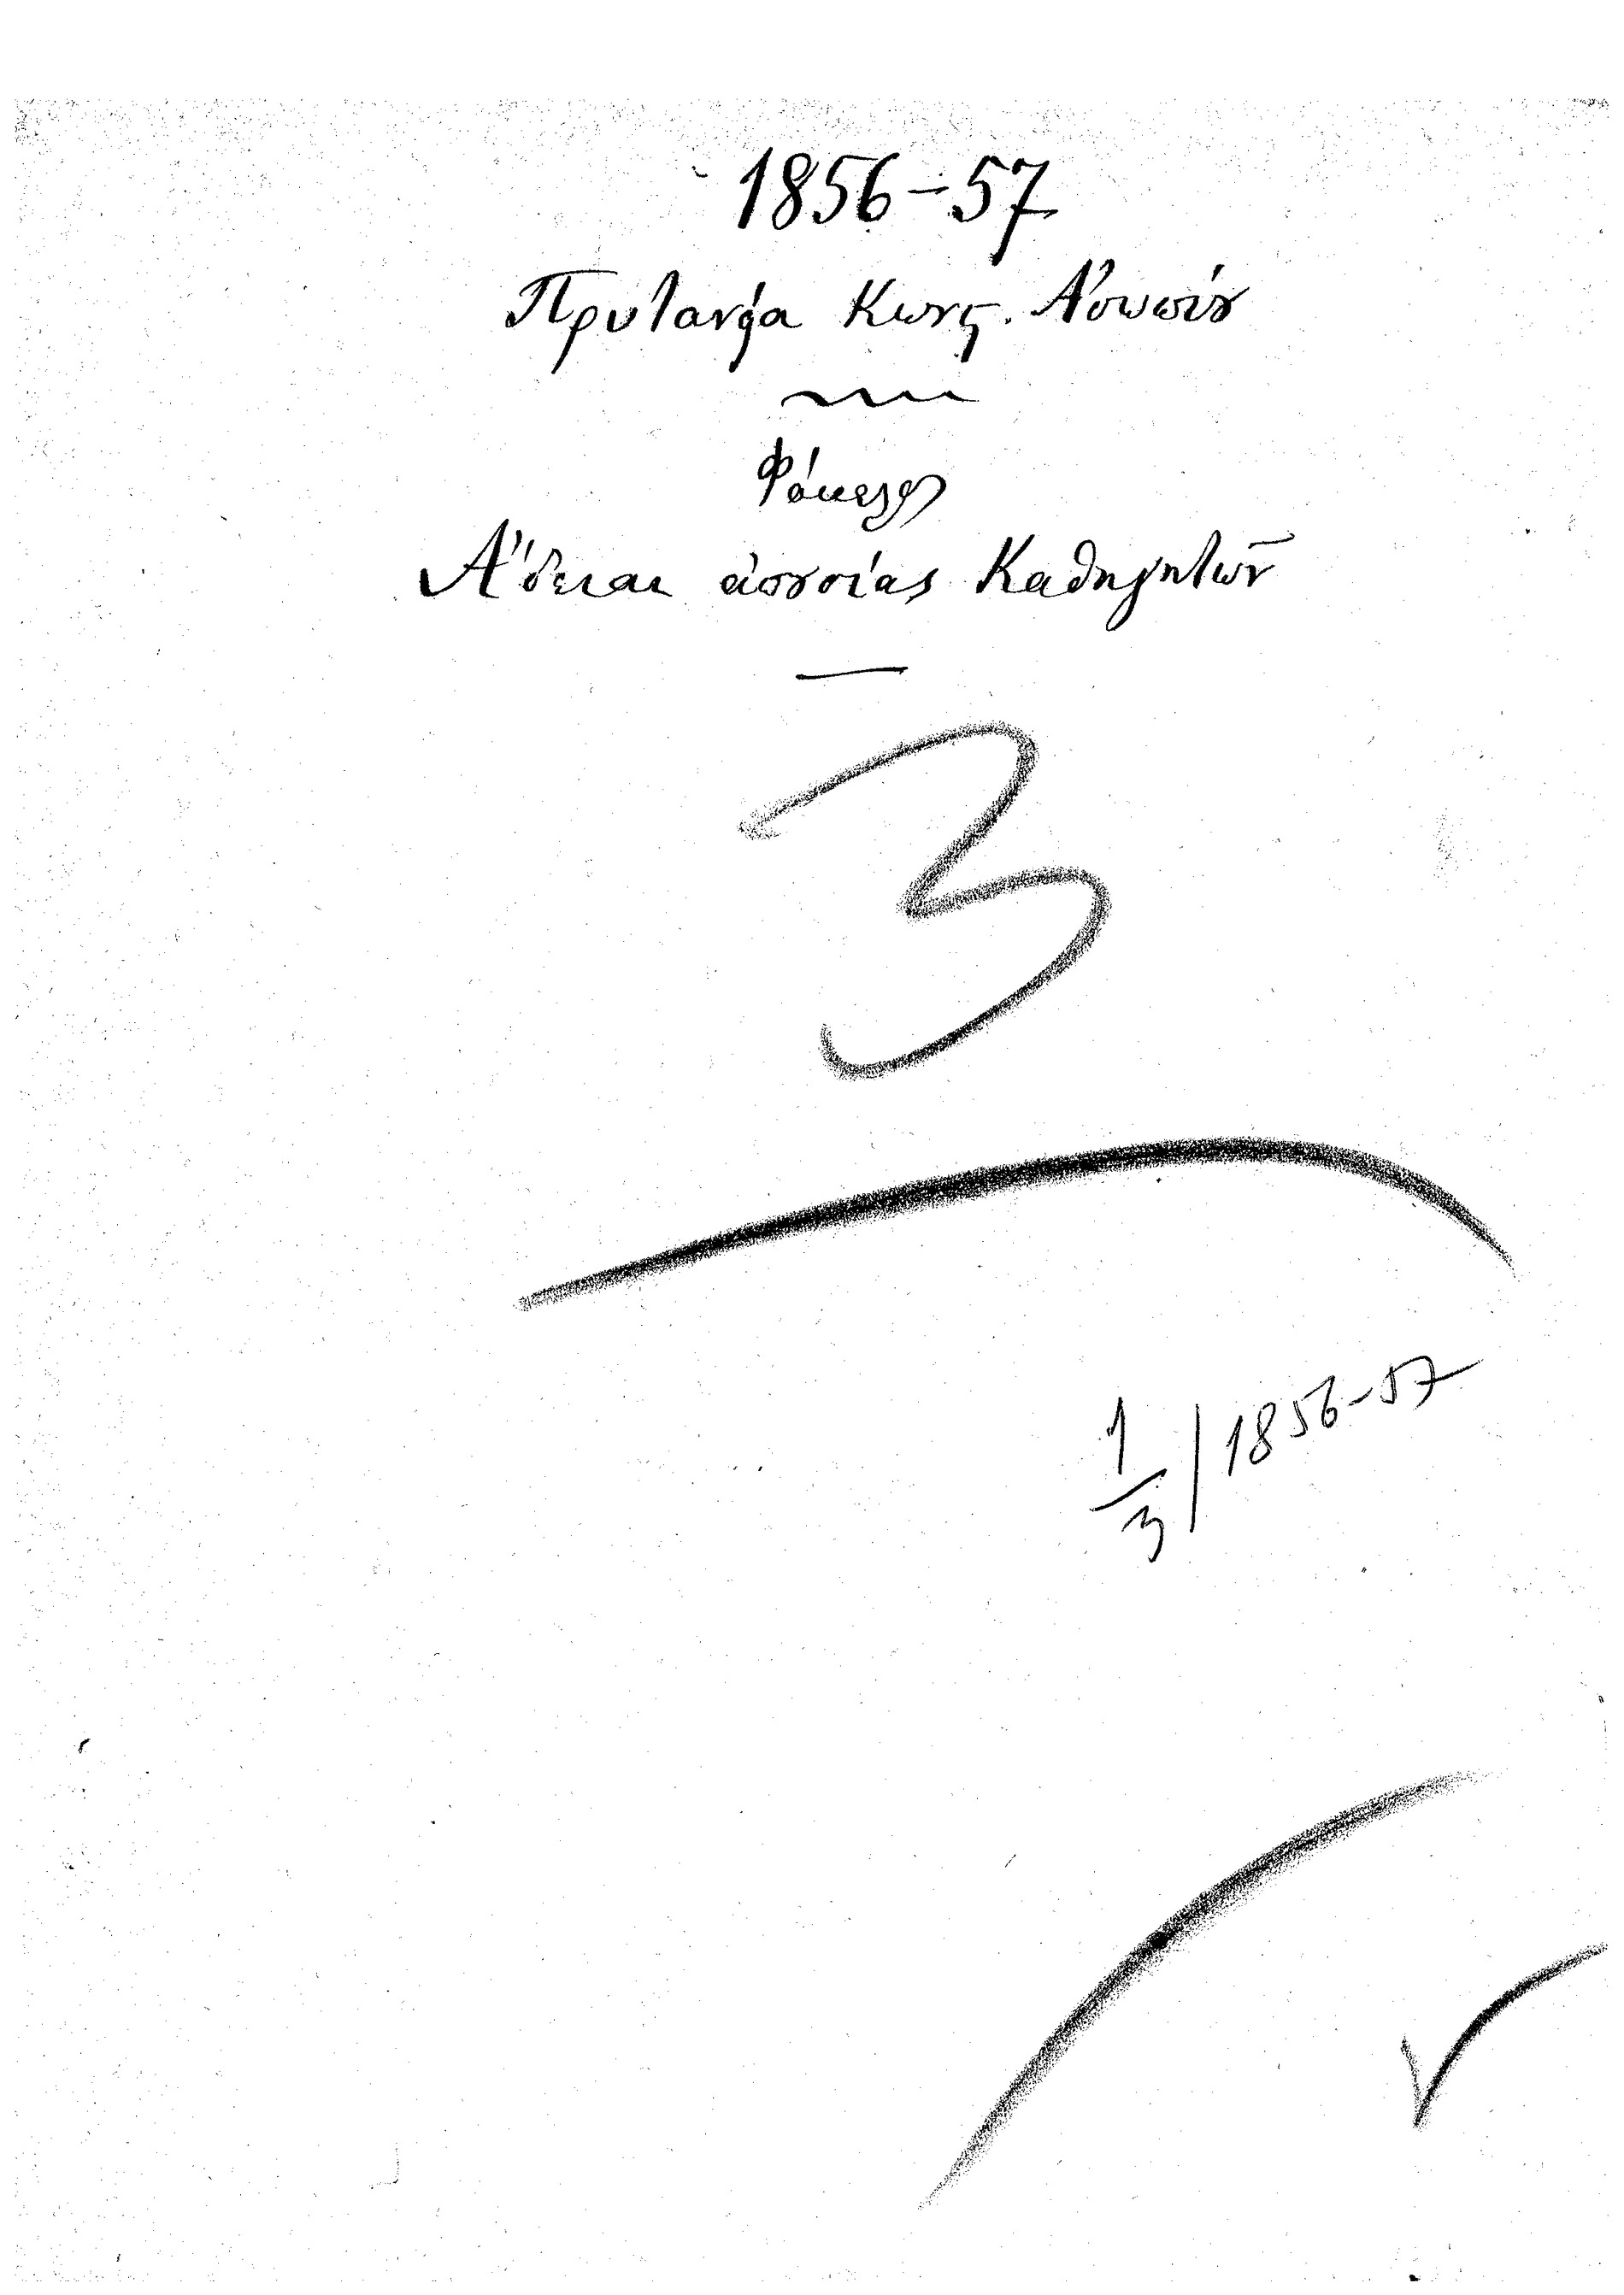 1856-57
Πρυτανεία Κωνς. Ἀσωπίου
Φάκελος
Ἄδειαι ἀπουσίας Καθηγητῶν
3
1/3 | 1856-57